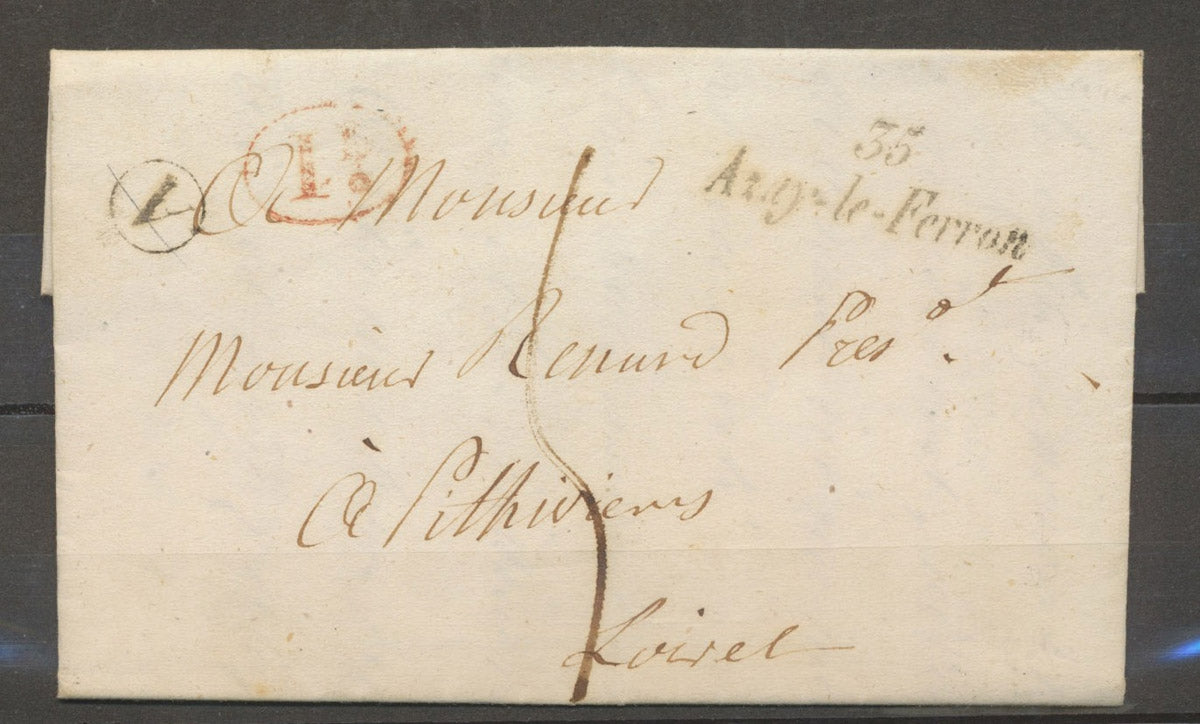 35
Azay-le-Ferron
1D
A Monsieur
Monsieur Renard Presdt.
à Pithiviers
Loiret